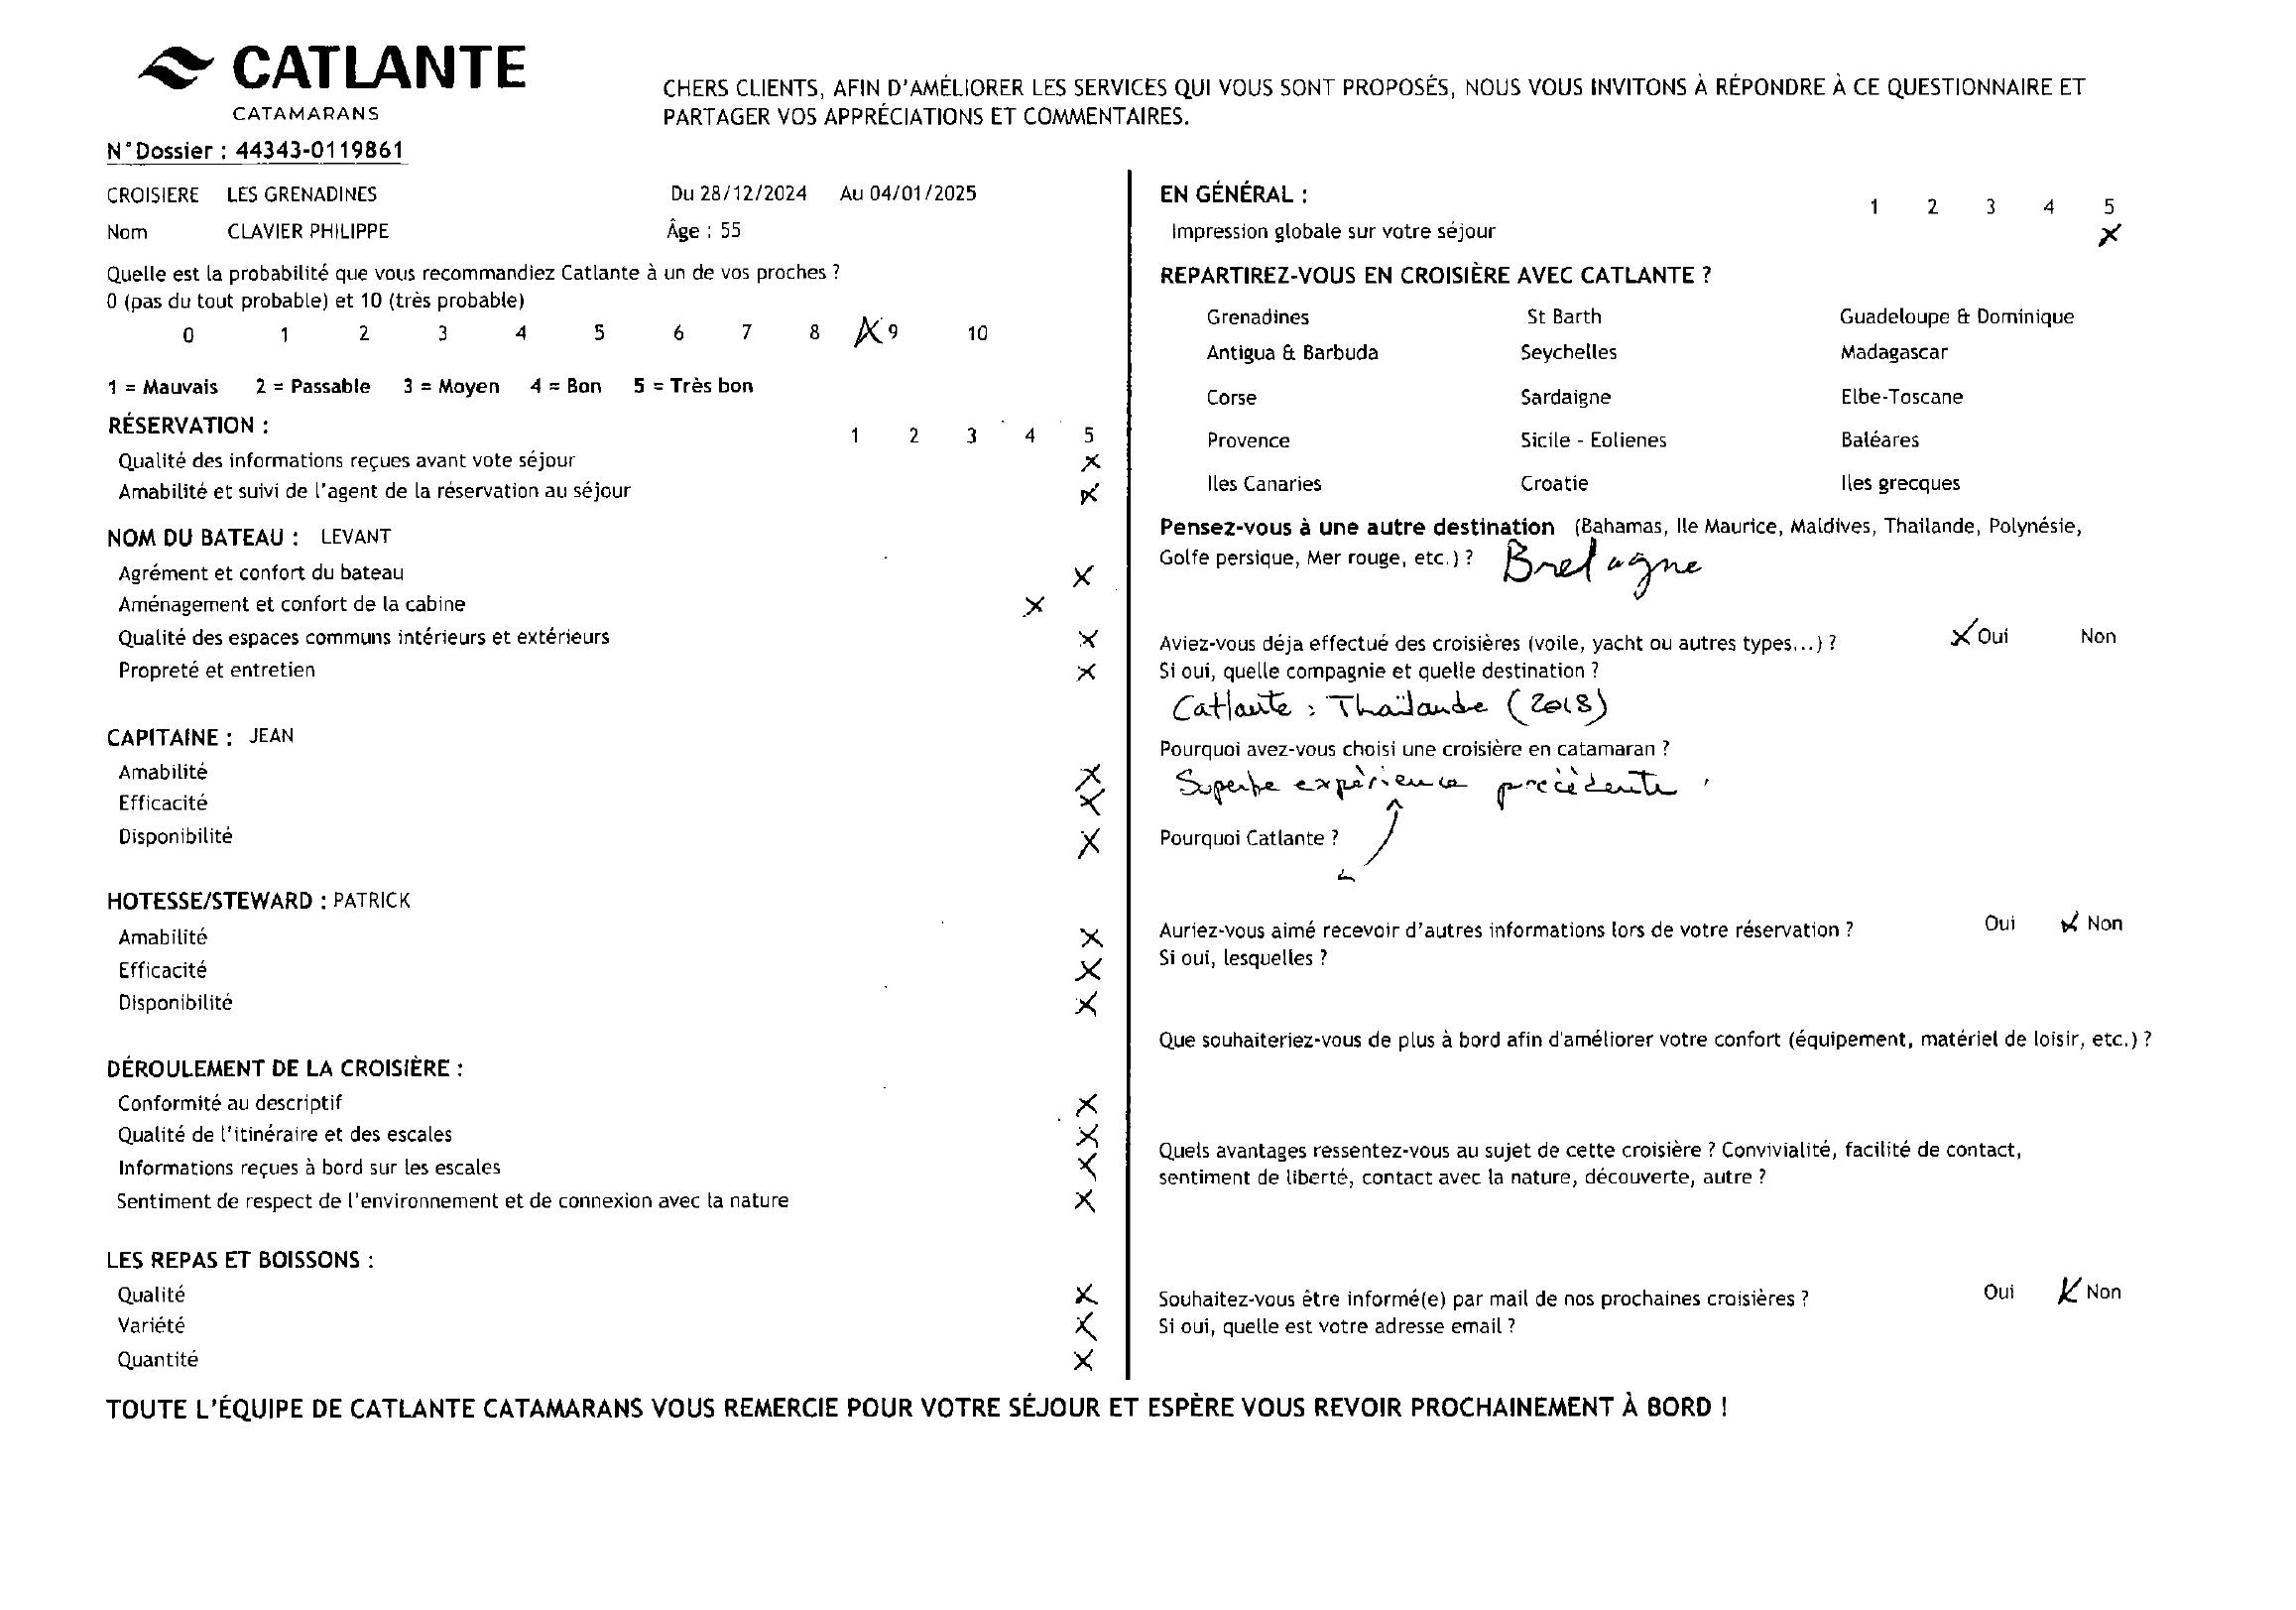 CATLANTE
CATAMARANS
CHERS CLIENTS, AFIN D'AMÉLIORER LES SERVICES QUI VOUS SONT PROPOSÉS, NOUS VOUS INVITONS À RÉPONDRE À CE QUESTIONNAIRE ET
PARTAGER VOS APPRÉCIATIONS ET COMMENTAIRES.
N°Dossier : 44343-0119861
CROISIERE LES GRENADINES Du 28/12/2024 Au 04/01/2025
Nom CLAVIER PHILIPPE Âge : 55
Quelle est la probabilité que vous recommandiez Catlante à un de vos proches ?
0 (pas du tout probable) et 10 (très probable)
0 1 2 3 4 5 6 7 8 X 9 10
1 = Mauvais 2 = Passable 3 = Moyen 4 = Bon 5 = Très bon
RÉSERVATION :
1 2 3 4 5
Qualité des informations reçues avant vote séjour X
Amabilité et suivi de l'agent de la réservation au séjour X
NOM DU BATEAU : LEVANT
Agrément et confort du bateau X
Aménagement et confort de la cabine X
Qualité des espaces communs intérieurs et extérieurs X
Propreté et entretien X
CAPITAINE : JEAN
Amabilité X
Efficacité X
Disponibilité X
HOTESSE/STEWARD : PATRICK
Amabilité X
Efficacité X
Disponibilité X
DÉROULEMENT DE LA CROISIÈRE :
Conformité au descriptif X
Qualité de l'itinéraire et des escales X
Informations reçues à bord sur les escales X
Sentiment de respect de l'environnement et de connexion avec la nature X
LES REPAS ET BOISSONS :
Qualité X
Variété X
Quantité X
EN GÉNÉRAL :
1 2 3 4 5
Impression globale sur votre séjour X
REPARTIREZ-VOUS EN CROISIÈRE AVEC CATLANTE ?
Grenadines St Barth Guadeloupe & Dominique
Antigua & Barbuda Seychelles Madagascar
Corse Sardaigne Elbe-Toscane
Provence Sicile - Eolienes Baléares
Iles Canaries Croatie Iles grecques
Pensez-vous à une autre destination (Bahamas, Ile Maurice, Maldives, Thailande, Polynésie,
Golfe persique, Mer rouge, etc.) ? Bretagne
Aviez-vous déja effectué des croisières (voile, yacht ou autres types...) ? X Oui Non
Si oui, quelle compagnie et quelle destination ?
Catlante : Thaïlande (2018)
Pourquoi avez-vous choisi une croisière en catamaran ?
Superbe expèrience precèdente
Pourquoi Catlante ?
Auriez-vous aimé recevoir d'autres informations lors de votre réservation ? Oui X Non
Si oui, lesquelles ?
Que souhaiteriez-vous de plus à bord afin d'améliorer votre confort (équipement, matériel de loisir, etc.) ?
Quels avantages ressentez-vous au sujet de cette croisière ? Convivialité, facilité de contact,
sentiment de liberté, contact avec la nature, découverte, autre ?
Souhaitez-vous être informé(e) par mail de nos prochaines croisières ? Oui X Non
Si oui, quelle est votre adresse email ?
TOUTE L'ÉQUIPE DE CATLANTE CATAMARANS VOUS REMERCIE POUR VOTRE SÉJOUR ET ESPÈRE VOUS REVOIR PROCHAINEMENT À BORD !